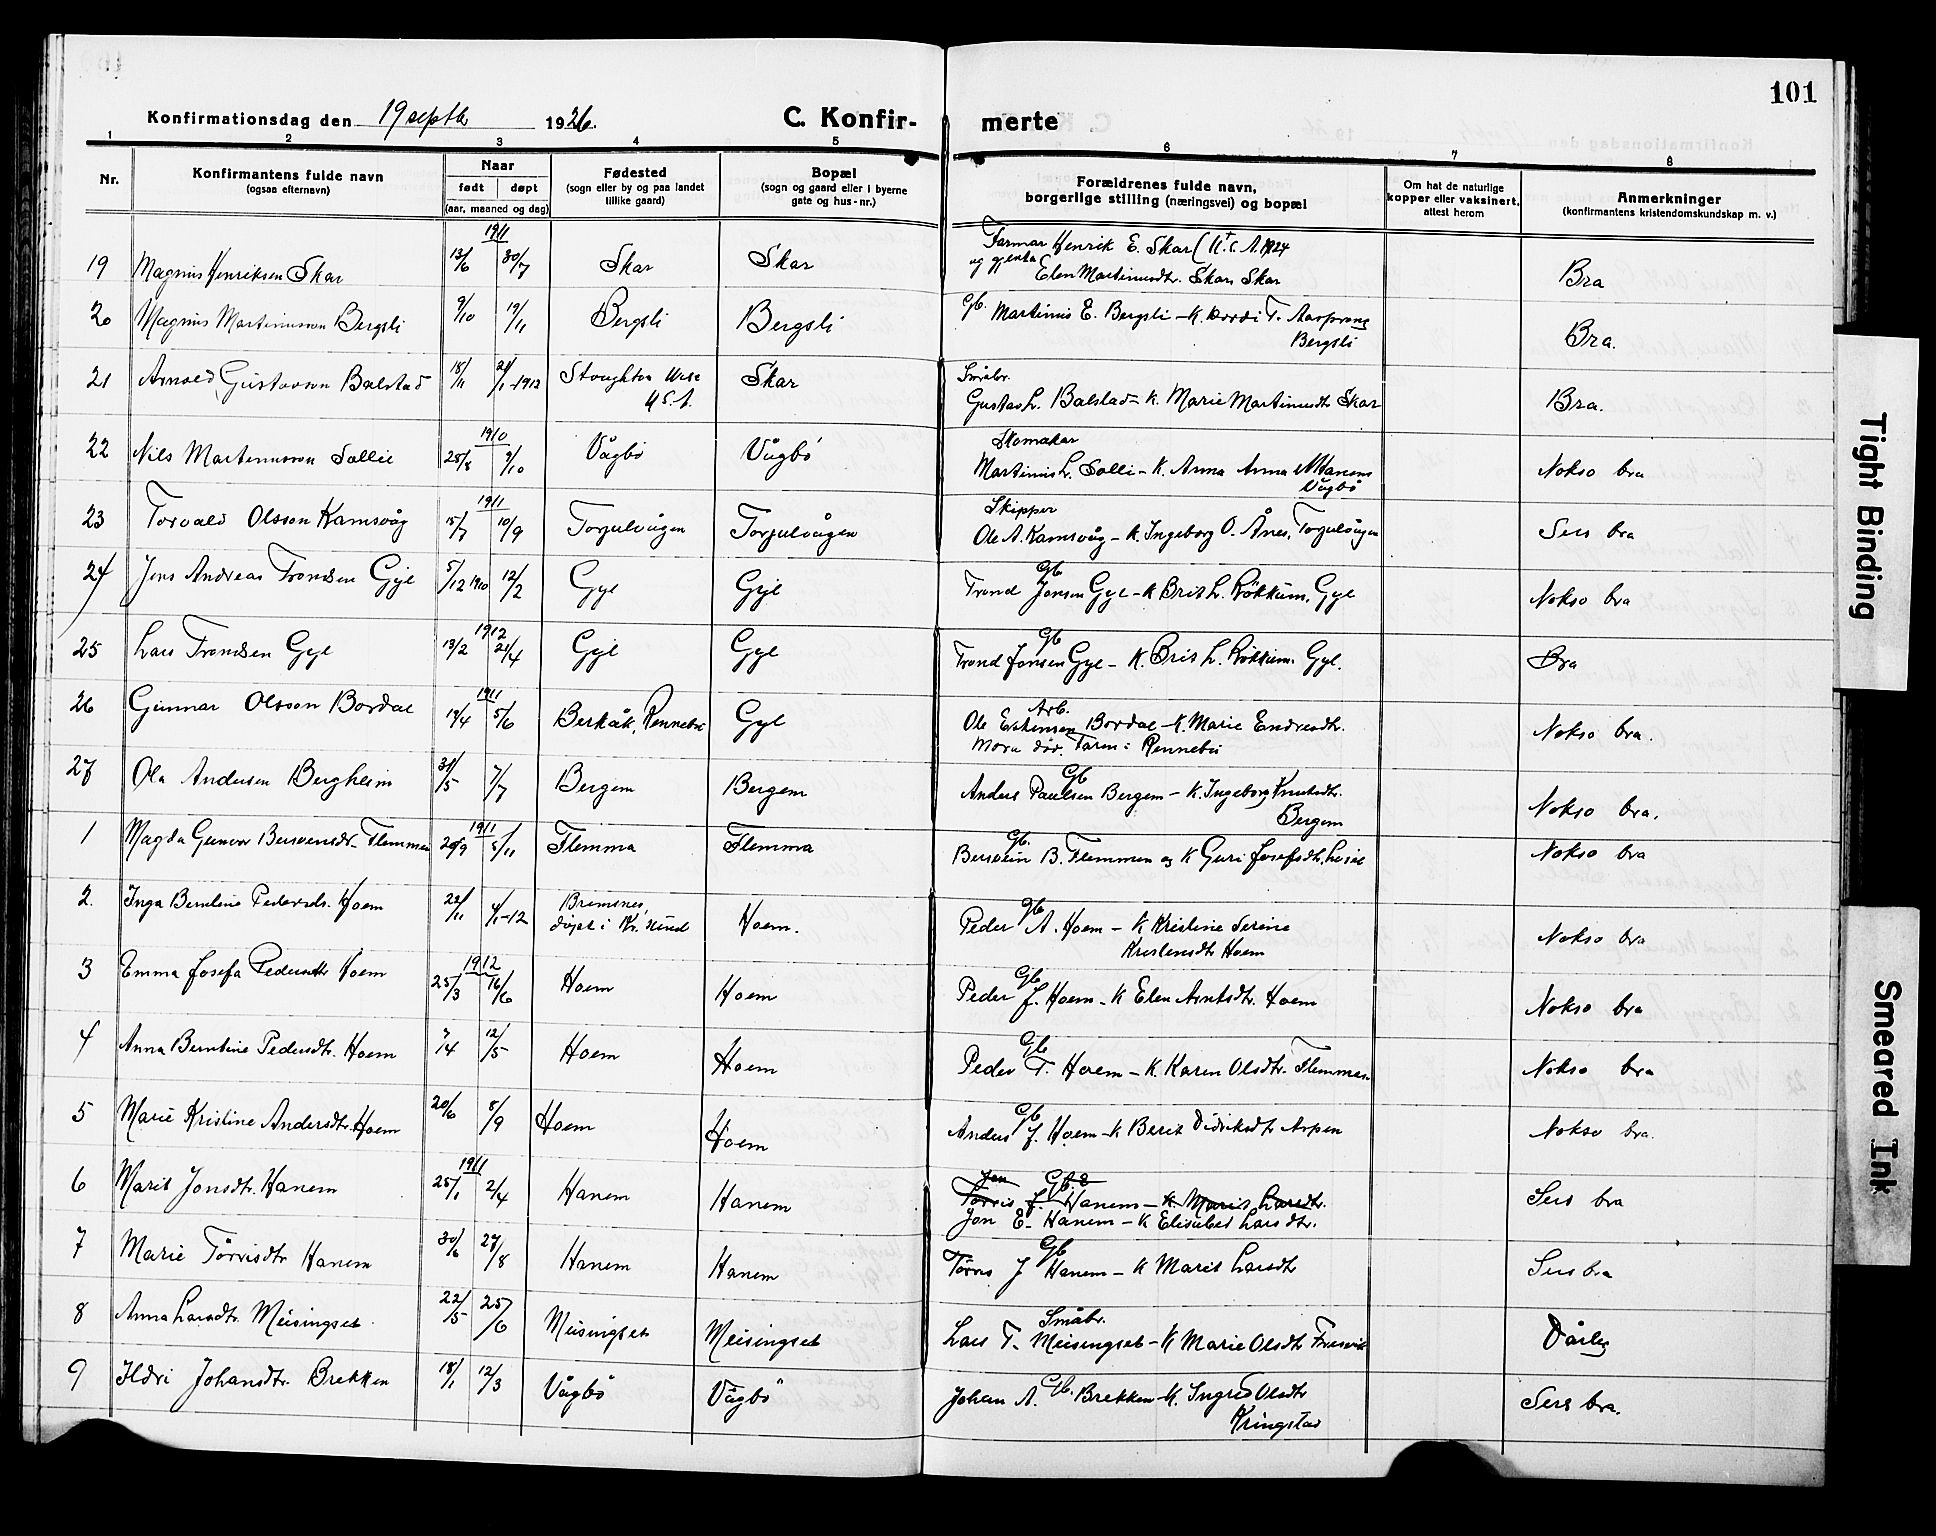 101
Konfirmationsdag den 19 septbr 1926.
C. Konfirmerte
1 2 3 4 5 6 7 8
Nr.
Konfirmantens fulde navn
(ogsaa efternavn)
Naar
født døpt
(aar, maaned og dag)
Fødested
(sogn eller by og paa landet
tillike gaard)
Bopæl
(sogn og gaard eller i byerne
gate og hus-nr.)
Forældrenes fulde navn,
borgerlige stilling (næringsvei) og bopæl
Om hat de naturlige
kopper eller vaksinert,
attest herom
Anmerkninger
(konfirmantens kristendomskundskap m. v.)
1911
19 Magnus Henriksen Skar 13/6 30/7 Skar Skar Farmar Henrik E. Skar (U.S.A. 1924
og gjenta Elen Martinusdtr. Skar, Skar Bra
20 Magnus Martinusson Bergsli 9/10 19/11 Bergsli Bergsli Gb. Martinus E. Bergsli – K. Dordi T. Aasprong
Bergsli Bra.
21 Arnold Gustavson Balstad 18/11 21/1-1912 Stoughton Wisc
U.S.A. Skar Småbr.
Gustav L. Balstad – K. Marie Martinusdtr Skar Bra.
1910
22 Nils Martinusson Sollie 25/8 9/10 Vågbø Vågbø Skomakar
Martinus L. Solli – K. Anna Hanens
Vågbø Nokso bra
1911
23 Torvald Olsson Kamsvåg 15/7 10/9 Torjulvågen Torjulvågen Skipper
Ole A. Kamsvåg – K. Ingeborg O. Ånes, Torjulvågen Sers bra
24 Jens Andreas Trondsen Gyl 5/12 1910 12/2 Gyl Gyl Gb
Trond Jonsen Gyl – K Brit L. Røkkum, Gyl Nokso bra
1912
25 Lars Trondsen Gyl 13/2 21/4 Gyl Gyl Gb
Trond Jonsen Gyl – K. Brit L. Røkkum. Gyl. Bra
1911
26 Gunnar Olsson Bordal 19/4 5/6 Berkåk, Rennebu Gyl Arb.
Ole Estensen Bordal – K. Marie Endresdtr.
Mora død. Faren i Rennebu Nokso bra.
27 Ola Andersen Bergheim 31/5 7/7 Bergem Bergem Gb
Anders Paulsen Bergem – K. Ingeborg Knutsdtr.
Bergem Nokso bra.
1911
1 Magda Gunvor Bersvensdr. Flemmen 20/9 5/11 Flemma Flemma Gb.
Bersvein B. Flemmen og K Guri Josefsdtr. Nokso bra
2. Inga Berntine Pedersdr. Hoem 22/11 4/1-12 Bremsnes,
døpt i Kr. sund Hoem. Gb
Peder A. Hoem – K Kristine Serine
Kristensdtr Hoem Nokso bra
1912
3 Emma Josefa Pedersdtr Hoem 25/3 16/6 Hoem Hoem Gb
Peder J. Hoem – K Elen Arntsdtr. Hoem Nokso bra
4 Anna Berntine Pedersdtr. Hoem 7/4 12/5 Hoem Hoem Gb
Peder T. Hoem – K. Karen Olsdtr. Flemmen Nokso bra
5 Marie Kristine Andersdtr. Hoem 20/6 8/9 Hoem Hoem Gb
Anders J. Hoem – K Berit Didriksdtr Arpen Nokso bra.
1911
6 Marit Jonsdtr. Hanem 25/1 2/4 Hanem Hanem Jon Gb. E
Tørris J. Hanem – K Marit Larsdtr.
Jon E. Hanem – K Elisabed Larsdtr. Sers bra
7 Marie Tørrisdtr Hanem 30/6 27/8 Hanem Hanem Gb
Tørris J Hanem – K Marit Larsdtr Sers bra
8 Anna Larsdtr. Meisingset 22/5 25/6 Meisingset Meisingset Småbr.
Lars T. Meisingset – K Marie Olsdtr Fresvik Dårleg
9 Ildri Johansdtr. Brekken 18/1 12/3 Vågbø Vågbø Johan A. Gb. Brekken – K. Ingrid Olsdtr
Kringstad Sers bra.
Tight Binding
Smeared Ink